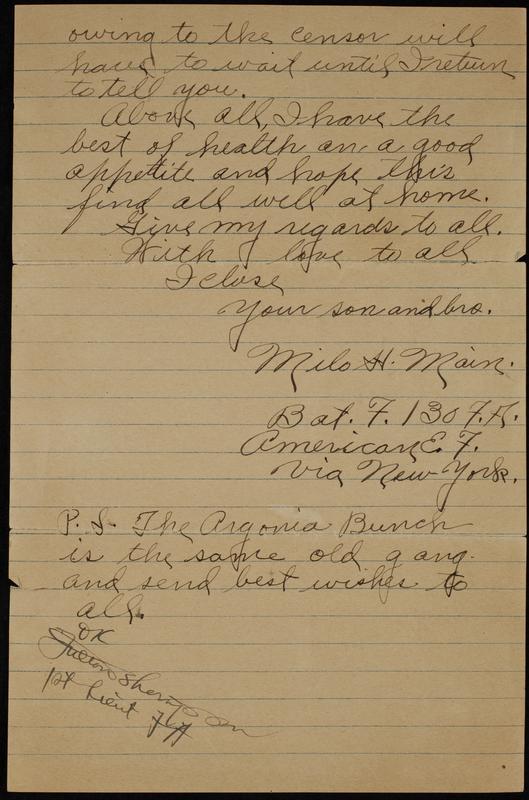 owing to the censor will
have to wait until I return
to tell you.
Above all, I have the
best of health an a good
appetite and hope this
find all well at home.
Give my regards to all.
With love to all
I close
Your son and bro.
Milo H. Main.
Bat. F. 130 F.A.
American E. F.
Via New York.
P. S. The Argonia Bunch
is the same old gang
and send best wishes to
all.
OK
1st Lieut FA